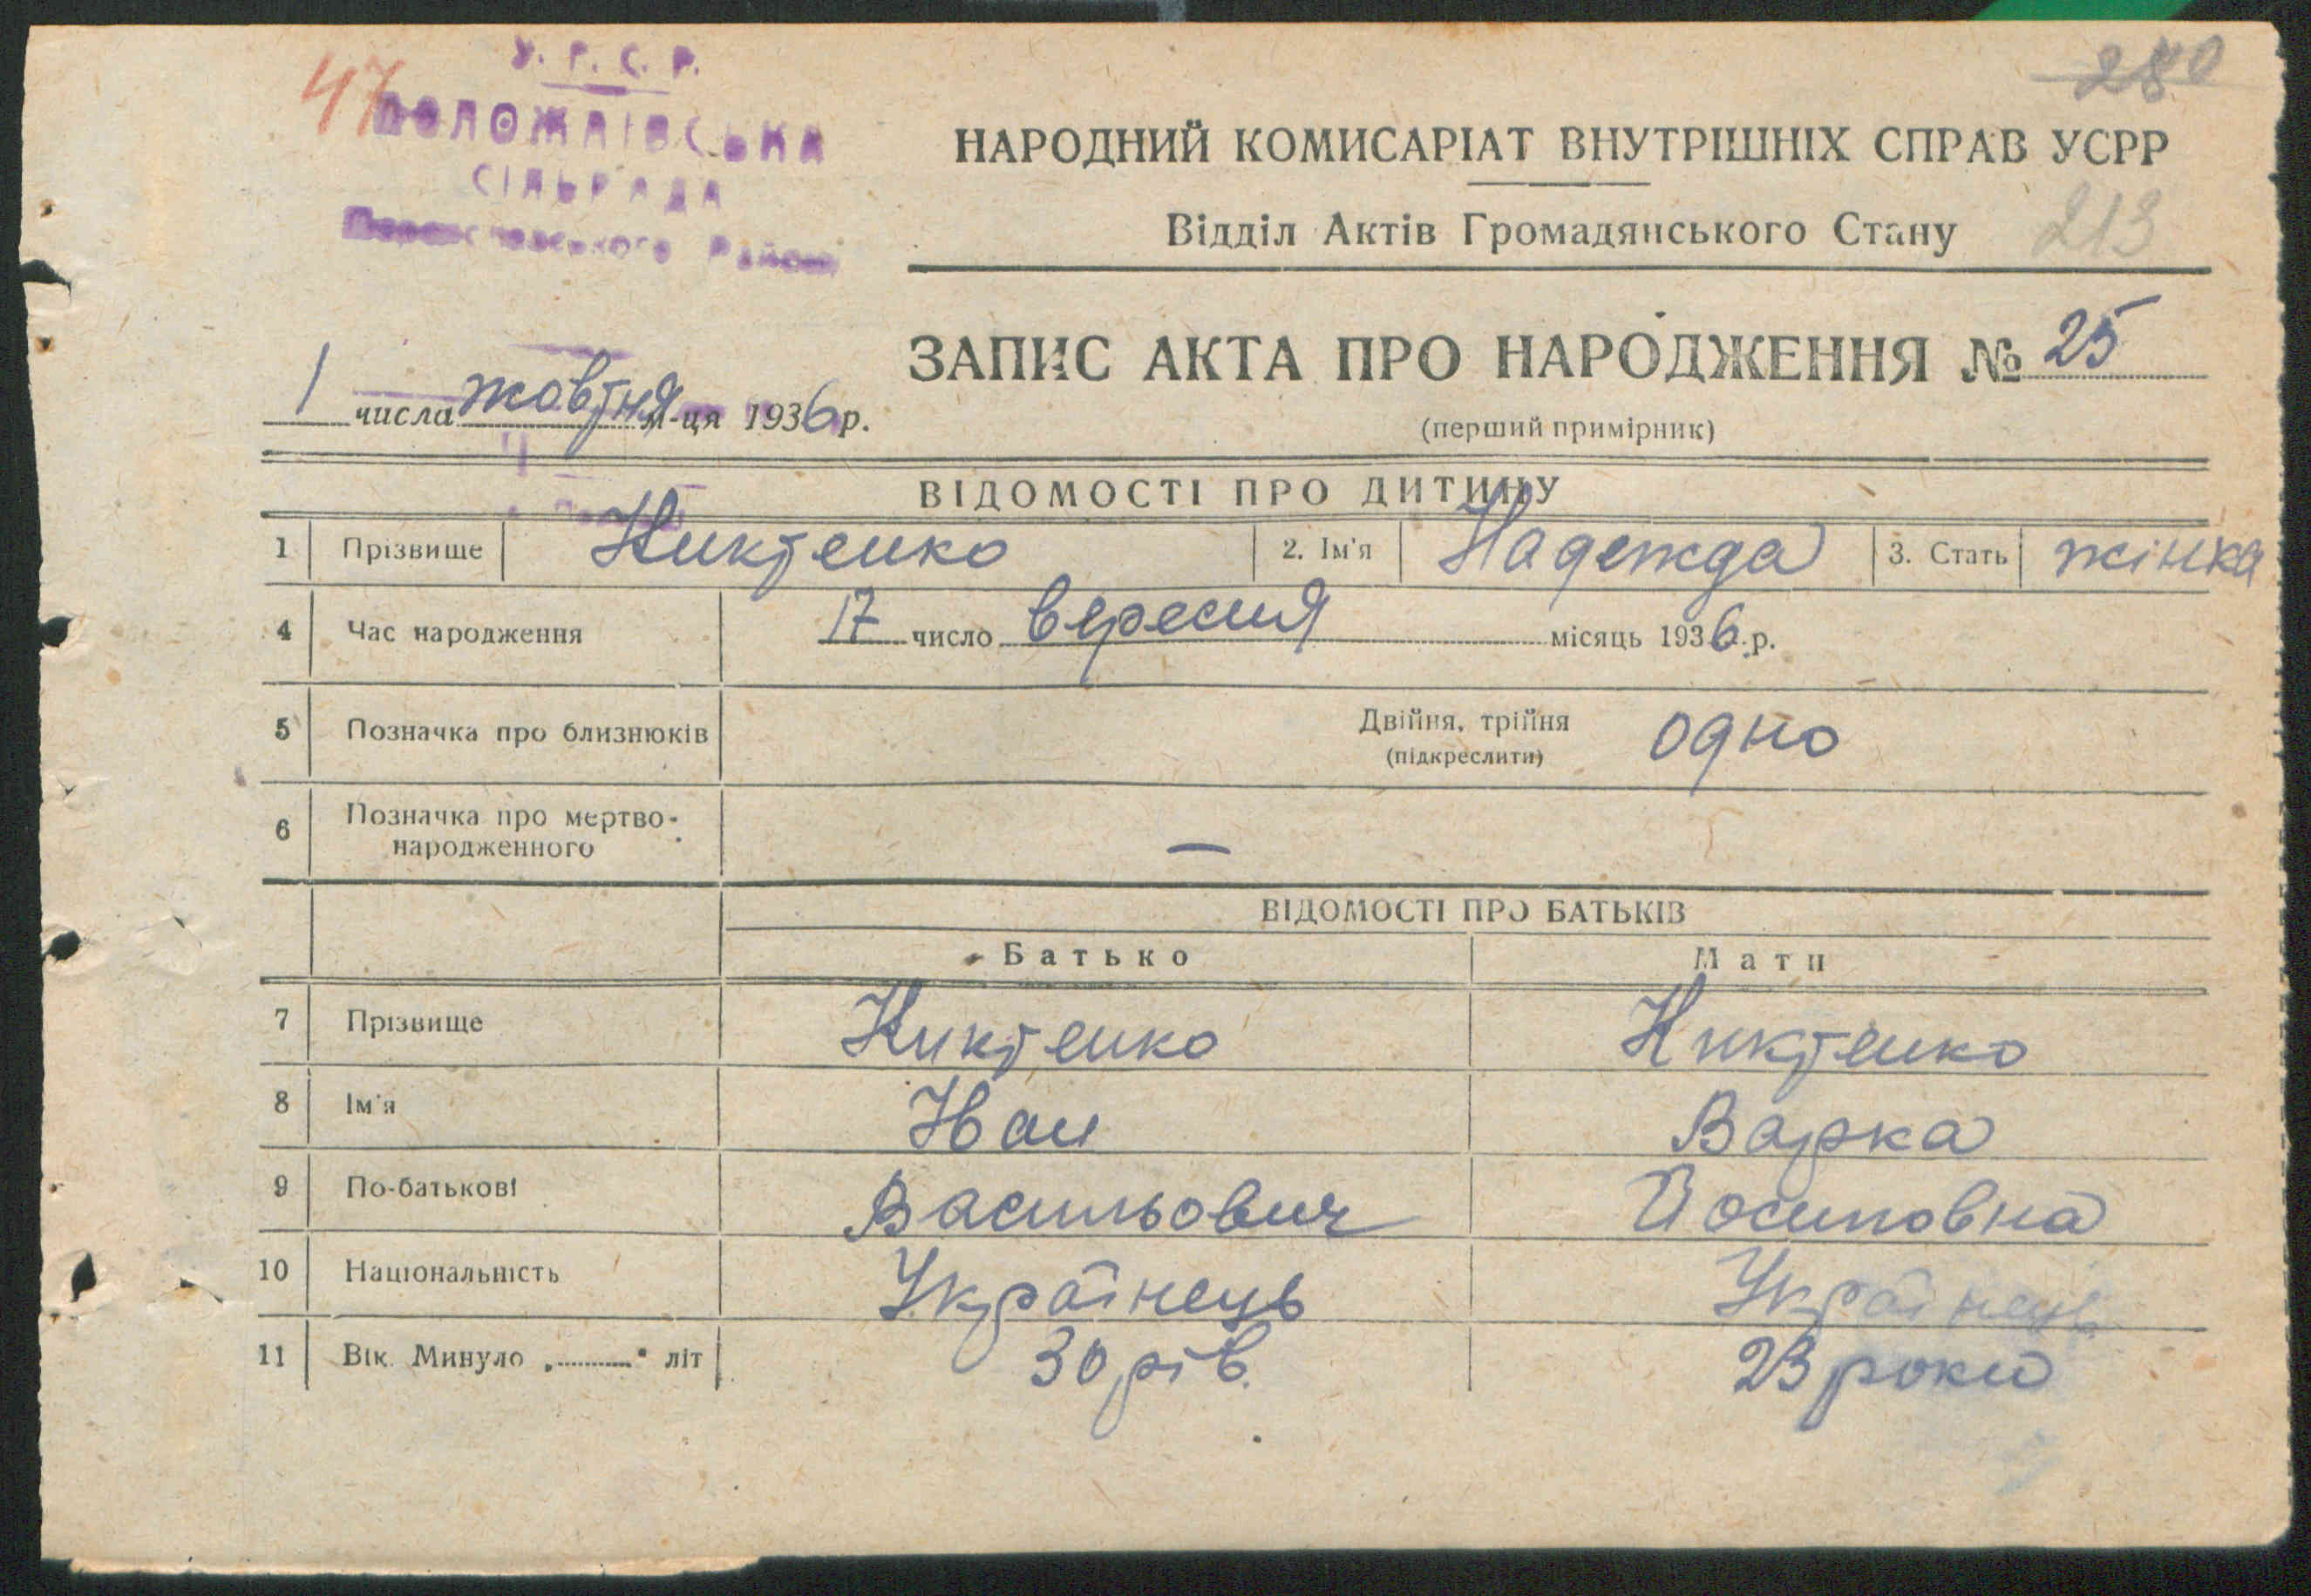 280
47
У. Р. С. Р.
ПОЛОЖАІВСЬКА
СІЛЬРАДА
Района
НАРОДНИЙ КОМИСАРІАТ ВНУТРІШНІХ СПРАВ УСРР
Відділ Актів Громадянського Стану 213
ЗАПИС АКТА ПРО НАРОДЖЕННЯ № 25
1 числа жовтня м-ця 1936 р.
(перший примірник)
ВІДОМОСТІ ПРО ДИТИНУ
1 Прізвище Никтенко 2. Ім'я Надежда 3. Стать жінка
4 Час народження 17 число вересня місяць 1936 р.
5 Позначка про близнюків Двійня, трійня (підкреслити) одно
6 Позначка про мертво-
народженного —
ВІДОМОСТІ ПРО БАТЬКІВ
Батько Мати
7 Прізвище Никтенко Никтенко
8 Ім'я Іван Варка
9 По-батькові Васильович Йосиповна
10 Національність Українець Українець
11 Вік. Минуло „ " літ 30 рів. 23 роки